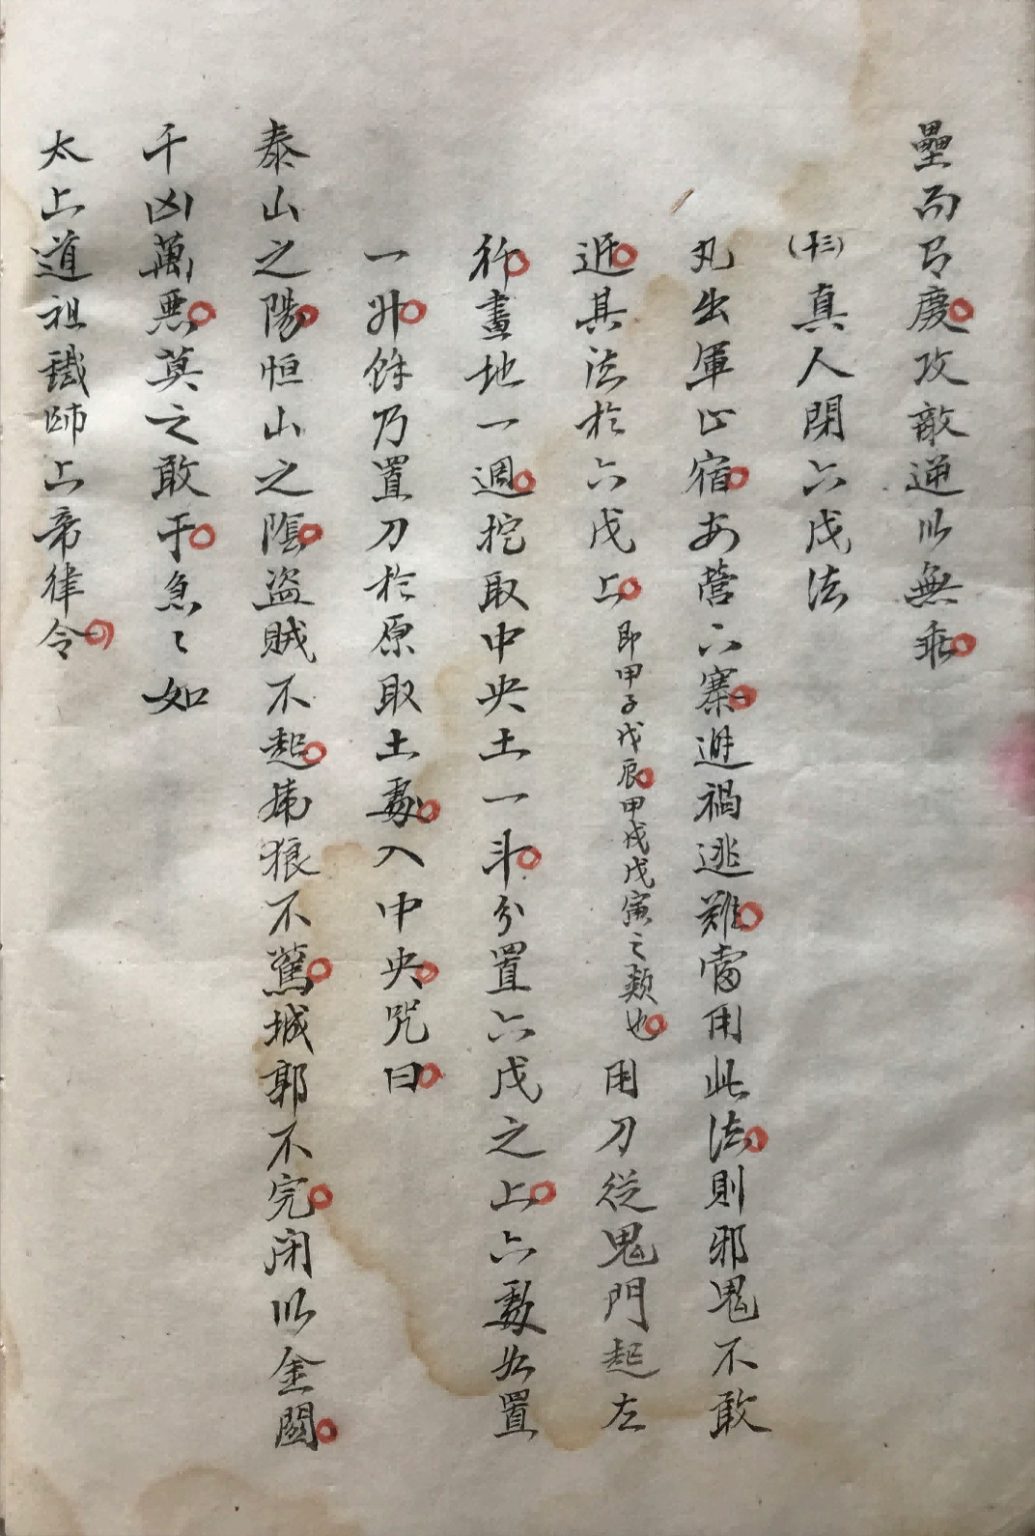 壘而弓慶攻敵逆以無乖
(十三)真人閉六戊法
凡出軍止宿安營下寨避禍逃難當用此法則邪鬼不敢
近其法於六戊上即甲子戊辰甲戌戊寅之類也用刀從鬼門起左
行畫地一週挖取中央土一斗分置六戊之上六處如置
一升餘乃置刀於原取土處入中央咒曰
泰山之陽恒山之陰盜賊不起虎狼不驚城郭不完閉以金關
千凶萬惡莫之敢干急〻如
太上道祖鐵師上帝律令